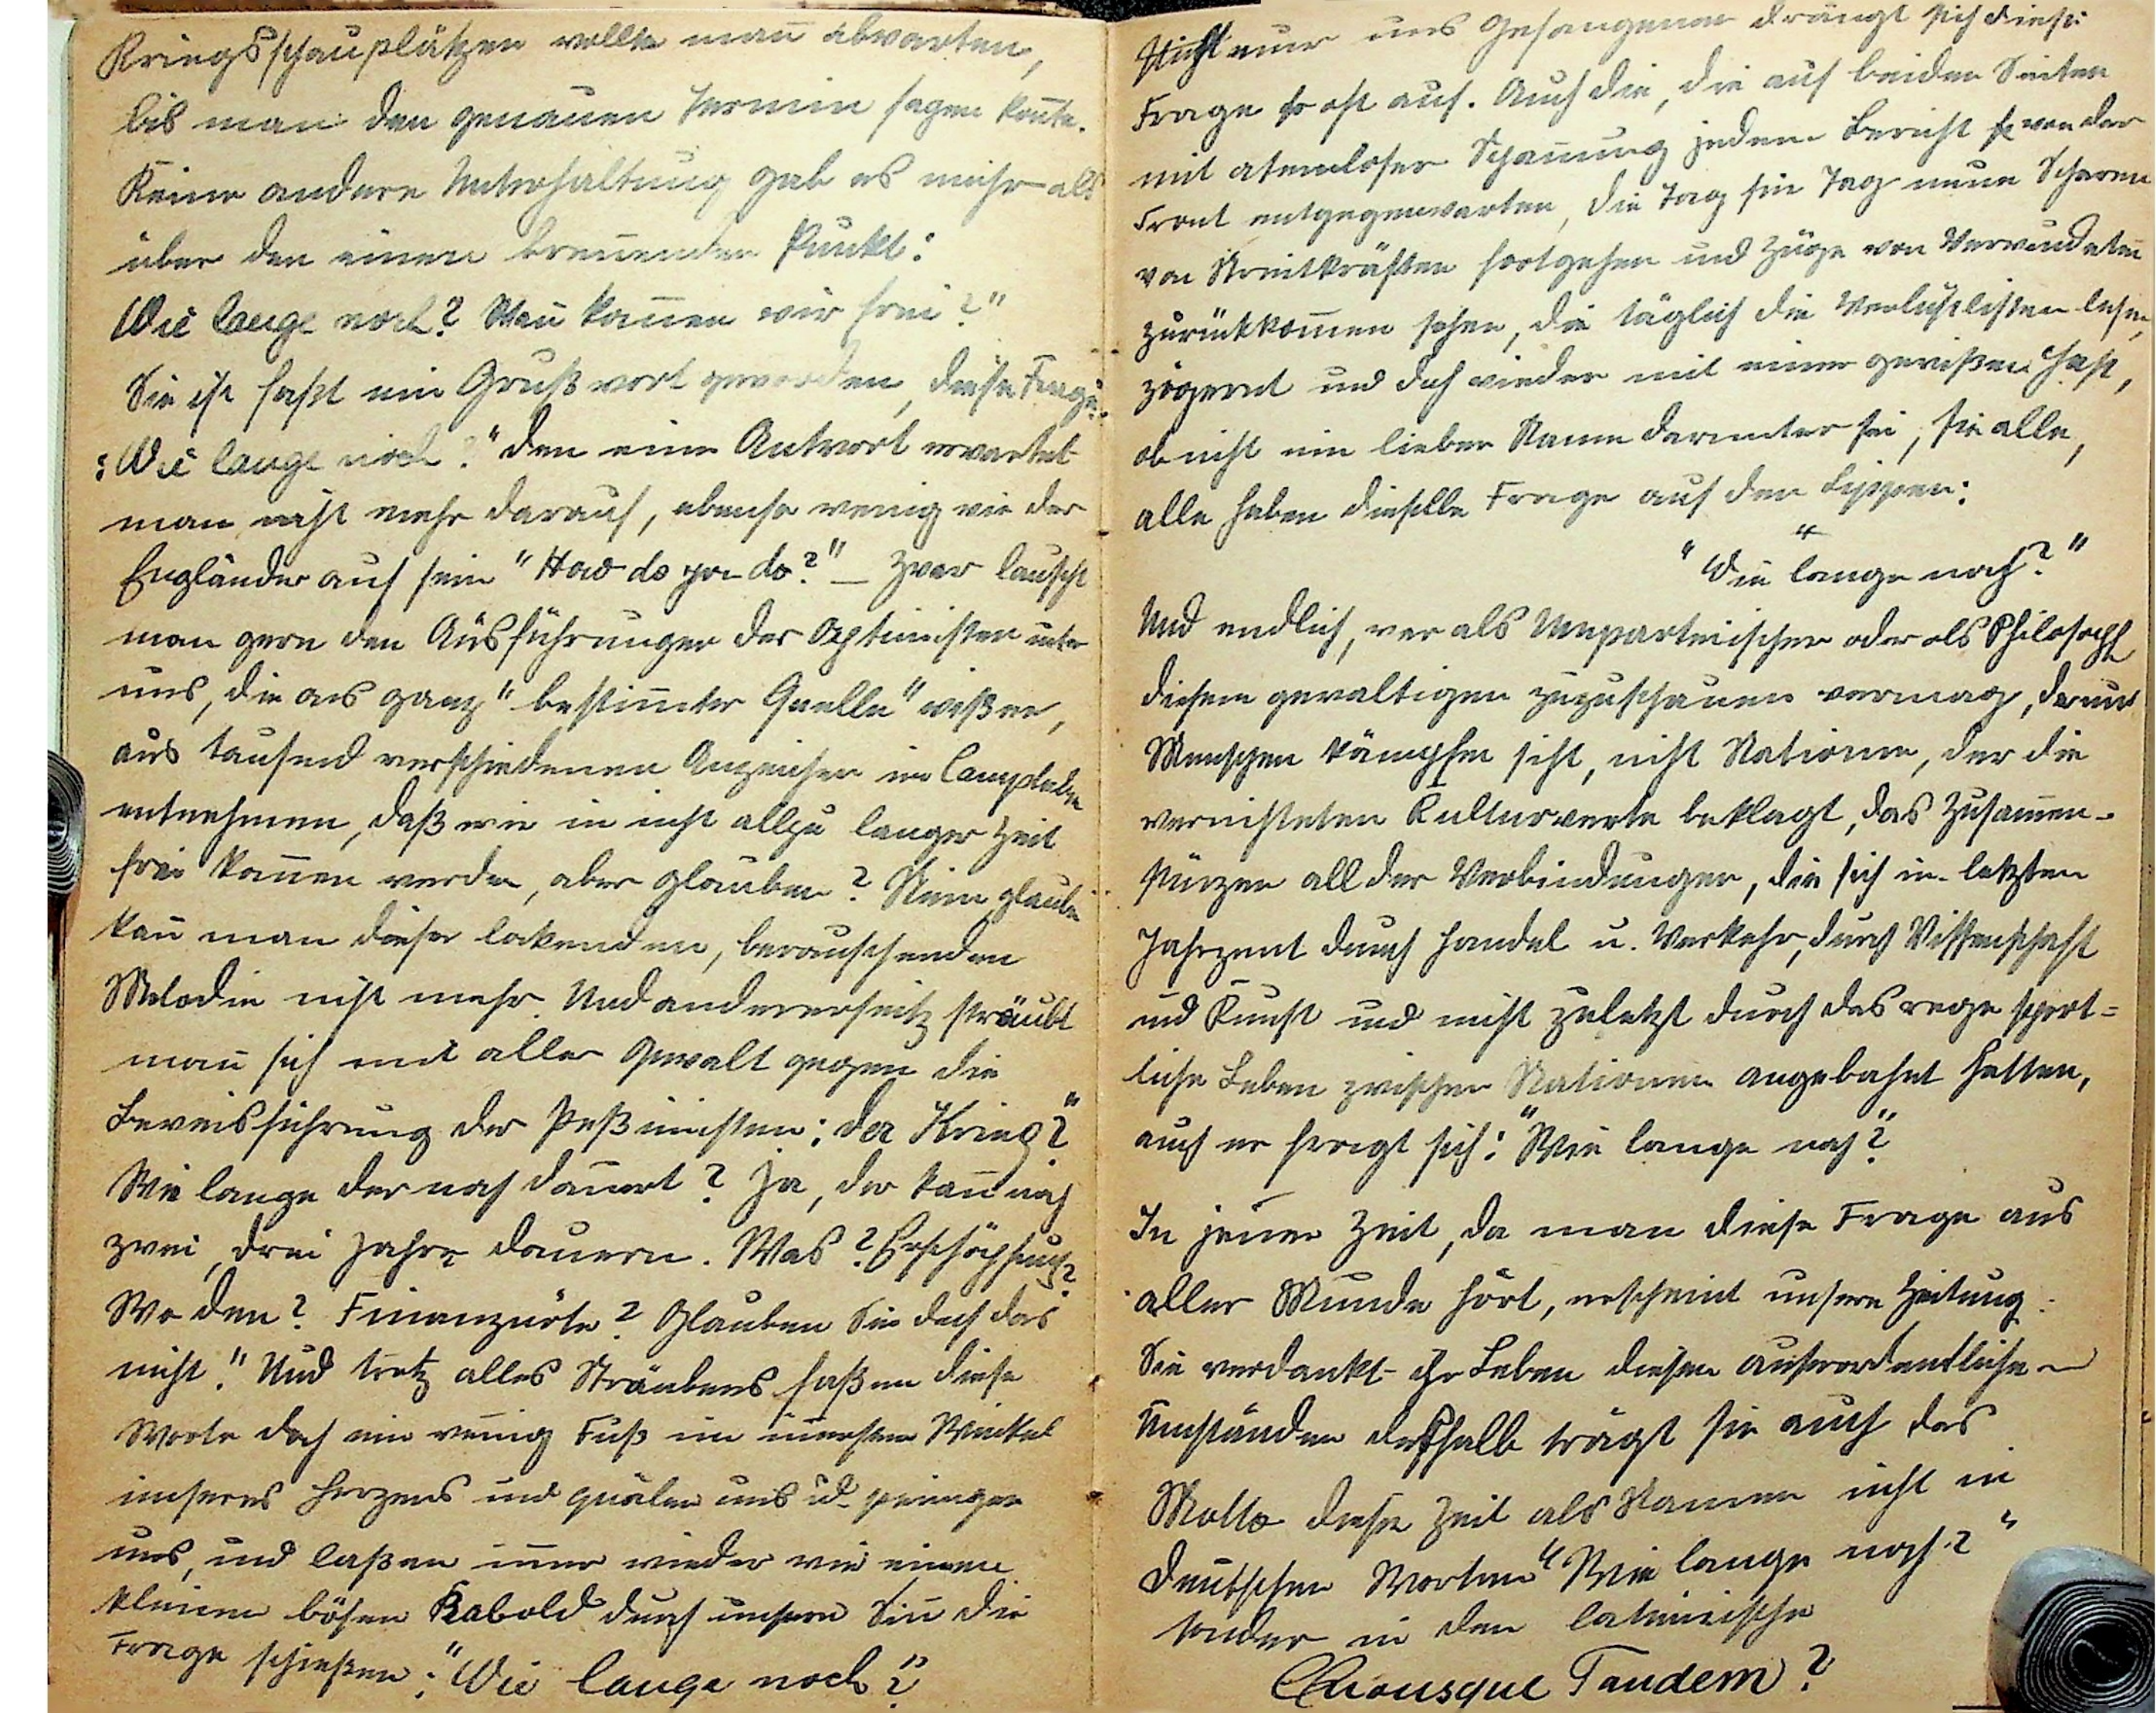 Kriegsschauplätzen wollte man abwarten,
bis man den genauen Termin sagen konnte.
Keine andere Unterhaltung gab es mehr als
über den einen brennenden Punkt:
Wie lange noch? Wann kommen wir frei?"
Sie ist faßt ein Grußwort geworden, diese Frage:
"Wie lange noch?" den eine Antwort erwartet
man nicht mehr darauf, ebenso wenig wie der
Engländer auf sein "How do you do?" – Zwar lauscht
man gern den Ausführungen der Optimisten unter
uns, die aus ganz "bestimmter Quelle" wißen,
aus tausend verschiedenen Anzeichen im Campleben
entnehmen, daß wir in nicht allzu langer Zeit
frei kommen werden, aber glauben? Nein, glauben
kann man dieser lockenden, berauschenden
Melodie nicht mehr. Und andererseitz sträubt
man sich mit aller Gewalt gegen die
Beweisführung der Peßimisten: "Der Krieg?
Wie lange der noch dauert? Ja, der kann noch
zwei, drei Jahre dauern. Was? Erschöpfung?
Wo den? Finanznöte? Glauben Sie doch das
nicht!" Und trotz alles Sträubens faßen diese
Worte doch ein wenig Fuß im innersten Winkel
unseres Herzens und quälen uns u. peinigen
uns, und laßen immer wieder wie einen
kleinen bösen Kobold durch unsern Sinn die
Frage schießen: "Wie lange noch?"
Nicht nur uns Gefangenen drängt sich diese
Frage so oft auf. Auch die, die auf beiden Seiten
mit atemloser Spannung jedem Bericht von der
Front entgegenwarten, die Tag für Tag neue Scharen
von Streitkräften fortgehen und Züge von Verwundeten
zurückkommen sehen, die täglich die Verlustlisten lesen,
zögernd und doch wieder mit einer gewißen Hast,
ob nicht ein lieber Name darunter sei, sie alle,
alle haben dieselbe Frage auf den Lippen:
"Wie lange noch?"
Und endlich, wer als Unparteiischer oder als Philosoph
diesem gewaltigen zuzuschauen vermag, der nur
Menschen kämpfen sieht, nicht Nationen, der die
vernichteten Kulturwerte beklagt, das Zusammen-
stürzen all der Verbindungen, die sich im letzten
Jahrzent durch Handel u. Verkehr, durch Wissenschaft
und Kunst und nicht zuletzt durch das rege sport=
liche Leben zwischen Nationen angebahnt hatten,
auch er fragt sich: "Wie lange noch?"
In jener Zeit, da man diese Frage aus
aller Munde hört, erscheint unsere Zeitung.
Sie verdankt ihr Leben diesen ausserordentlichen
Umständen deßhalb trägt sie auch das
Motto dieser Zeit als Namen nicht in
deutschen Worten "Wie lange noch?"
sonder in den lateinische
Quousque Tandem?